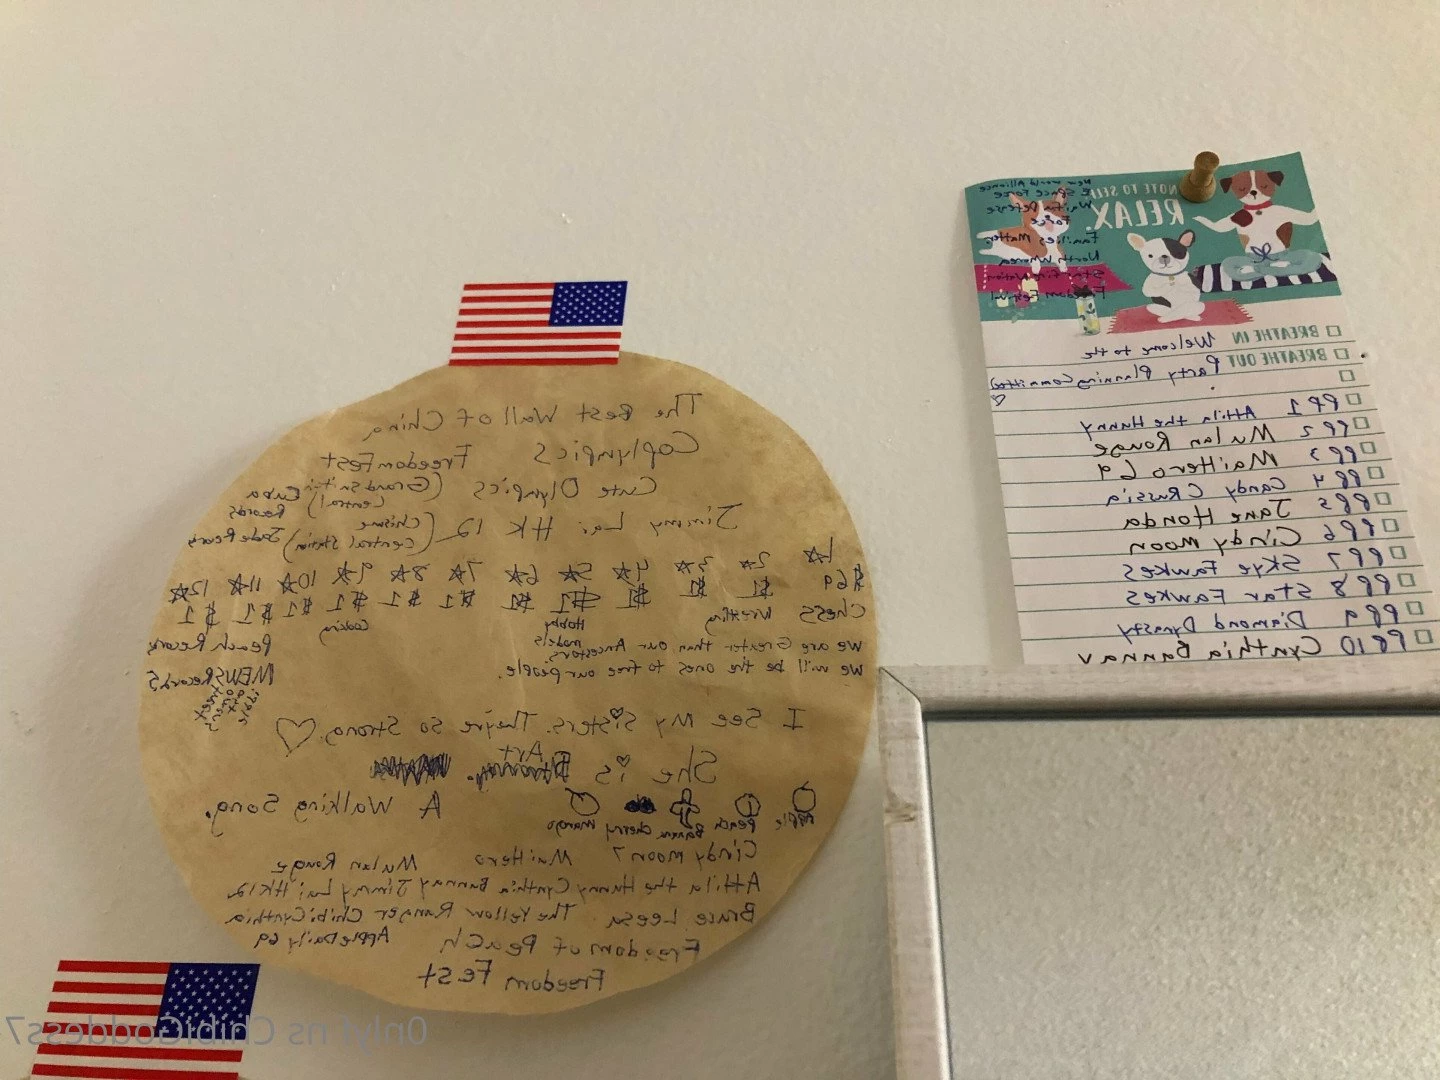 The Best Wall of China
Coplympics FreedomFest
Cute Olympics (Grandsnitch Central) Cuba Records
Jimmy Lai HK 12 (Chisme Central Station) Jade Pears
1☆ 2☆ 3☆ 4☆ 5☆ 6☆ 7☆ 8☆ 9☆ 10☆ 11☆ 12☆
$69 $1 $1 $1 $1 $1 $1 $1 $1 $1 $1 $1
Chess Wrestling Hobby models Cooking
We are Greater than our Ancestors. Peach Records
We will be the ones to free our people. NEWSRecords
I See My Sisters. They're So Strong.
She is Art
A Walking Song.
Apple Peach Banana cherry mango
Cindy moon 7 MaiHero Mulan Rouge
Attila the Hunny Cynthia Bannay Jimmy Lai HK12
Bruce Leesa The Yellow Ranger ChibiCynthia
Freedom of Peach AppleDaily 69
Freedom Fest
NOTE TO SELF:
RELAX.
New World Alliance
Space Force
Waifu Defense
Force
Families Matter
North Whorea
Starfire Nation
Freedom Festival
BREATHE IN Welcome to the
BREATHE OUT Party Planning Committee
PP1 Attila the Hunny
PP2 Mulan Rouge
PP3 MaiHero 69
PP4 Candy CRussia
PP5 Jane Honda
PP6 Cindy moon
PP7 Skye Fawkes
PP8 Star Fawkes
PP9 Diamond Dynasty
PP10 Cynthia Bannav
0nlyf ns ChibiGoddess7